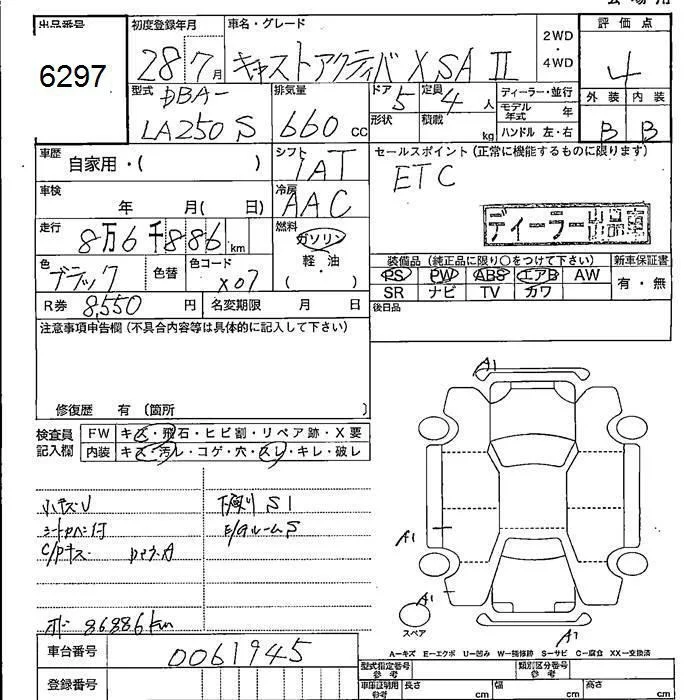 出品番号
6297
初度登録年月
28年7月
車名・グレード
キャストアクティバ X SA II
2WD
・
4WD
評価点
4
外装 内装
B B
型式
DBA-
LA250S
排気量
660 CC
ドア 5
形状
定員 4 人
積載 kg
ディーラー・並行
モデル年式 年
ハンドル 左・右
車歴
自家用・( )
シフト
IAT
セールスポイント(正常に機能するものに限ります)
ETC
車検
年 月( 日)
冷房
AAC
走行
8万6千886km
燃料
ガソリン
軽・油
( )
ディーラー
色
ブラック
色替
色コード
X07
装備品(純正品に限り○をつけて下さい)
PS PW ABS エアB AW
SR ナビ TV カワ
新車保証書
有・無
R券 8,550 円
名変期限 月 日
後日品
注意事項申告欄(不具合内容等は具体的に記入して下さい)
修復歴 有(箇所 )
検査員
記入欄
FW キズ・飛石・ヒビ割・リペア跡・X要
内装 キズ・汚レ・コゲ・穴・スレ・キレ・破レ
小キズU
シートカバー付
C/Pキズ
下廻リ S1
E/GルームS
86886km
A1
A1
A1
A1
スペア
A−キズ E−エクボ U−凹み W−補修跡 S−サビ C−腐食 XX−交換済
車台番号
0061945
登録番号
型式指定番号
参考
類別区分番号
参考
車庫証明用
参考
長さ cm
幅 cm
高さ cm